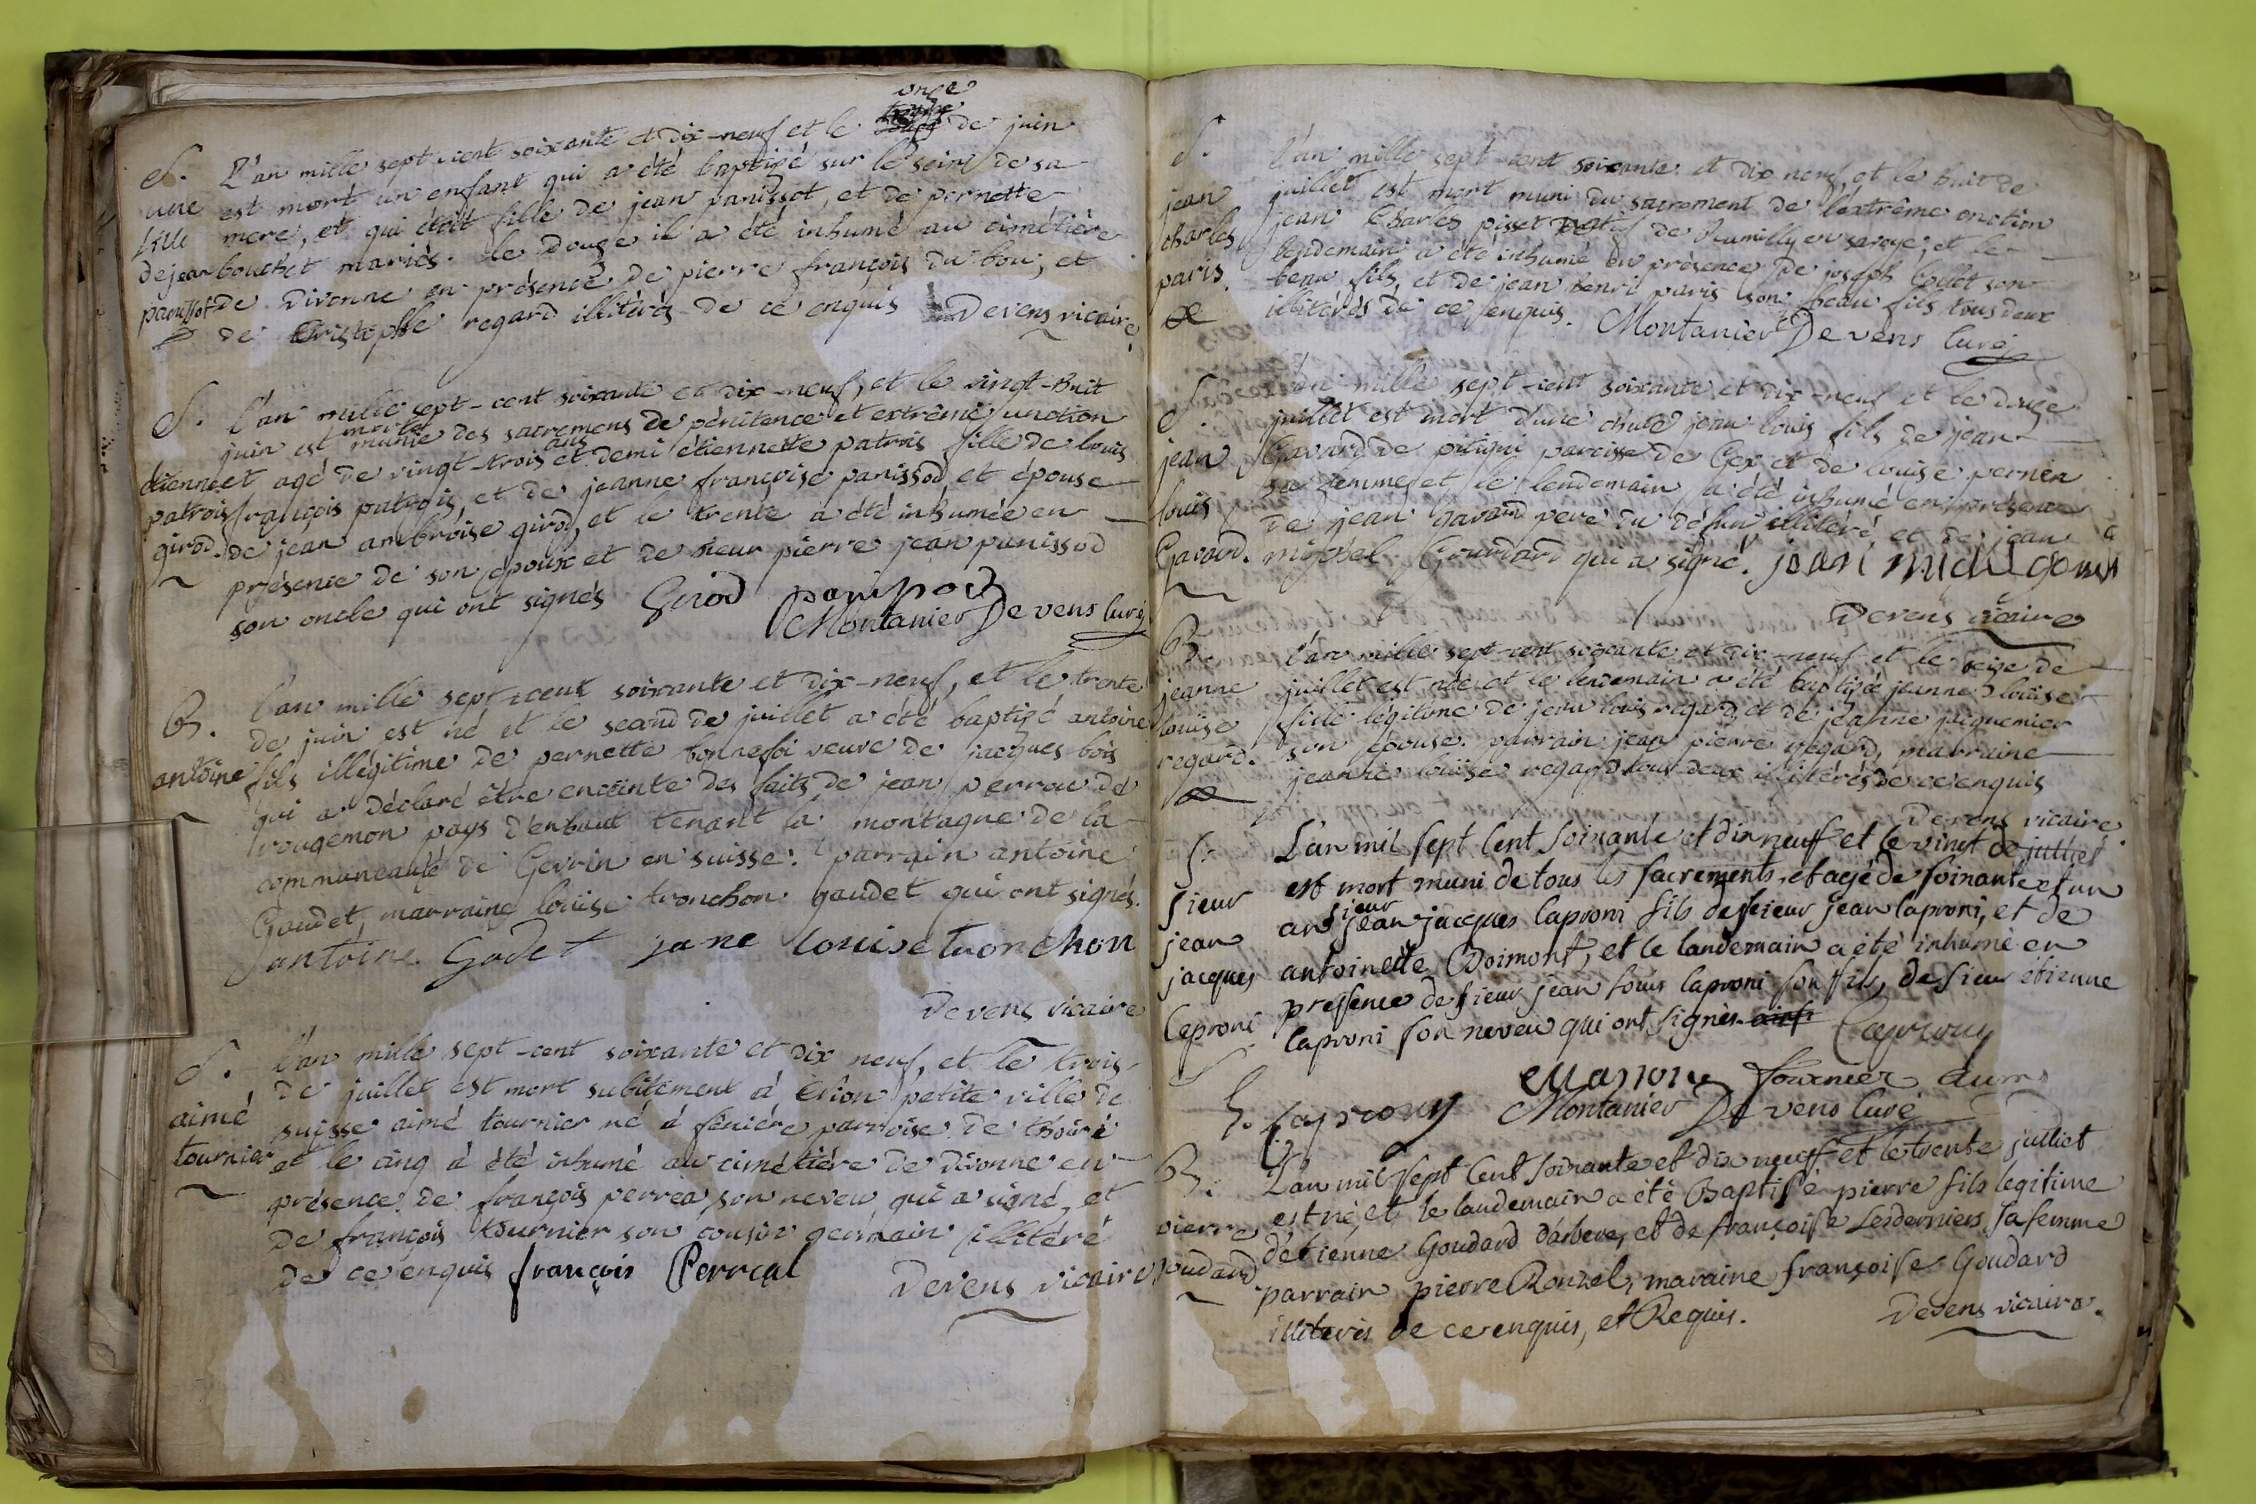 onze
S. L'an mille sept-cent soixante et dix-neuf et le de juin
une est mort un enfant qui a été baptizé sur le sein de sa
fille mere, et qui étoit fille de jean panissot, et de pernette
de jean bouchet mariés. le douze il a été inhumé au cimétière
panissot de divonne en présence de pierre françois du bou, et
de Cristophle regard illitérés de ce enquis Devens vicaire
S. L'an mille sept-cent soixante et dix-neuf, et le vingt-huit
juin est morte munie des sacremens de pénitence et extrême onction
étiennet et agé de vingt-trois ans et demi étiennette patrois fille de louis
patrois françois patrois, et de jeanne françoise panissod et épouse
girod. de jean ambroise girod, et le trente a été inhumée en
présence de son epoux et de sieur pierre jean panissod
son oncle qui ont signés Girod panissod
Montanier Devens Curé
B. L'an mille sept-cent soixante et dix-neuf, et le trente
de juin est né et le second de juillet a été baptizé antoine
antoine fils illégitime de pernette bonnefoi veuve de jacques bois
qui a déclaré être enceinte des faits de jean perrou de
rougemon pays d'enhaut tenant la montagne de la
communeauté de Gevrin en suisse. parrain antoine
Gaudet, marraine louise tronchon gaudet qui ont signés.
antoine Godet jane louise tronchon
Devens vicaire
S. L'an mille sept-cent soixante et dix neuf, et le trois
de juillet est mort subitement à petite ville de
aimé suisse aimé tournier né à féniére parroise de thoiré
tournier et le cinq à été inhumé au cimétiére de divonne en
présence de françois perréa son neveu qui a signé, et
de françois tournier son cousin germain illitéré
de ce enquis françois Perreal Devens vicaire
S. L'an mille sept-cent soixante et dix neuf, et le huit de
jean juillet est mort muni du sacrement de l'extrême onction
charles jean Charles pisset de Rumilly en savoye, et le
paris. lendemain a été inhumé en présence de joseph Collet son
beau fils, et de jean henri paris son beau fils tous deux
illitérés de ce enquis. Montanier Devens Curé
S. L'an mille sept-cent soixante et dix-neuf et le douze
juillet est mort d'une chute jean louis fils de jean
jean Gavard de pitigni paroisse de Gex et de louise pernéa
louis sa femme et le lendemain a été inhumé en présence
de jean Gavard pere du défun illiteré et de jean
Gavard. michel Gourdard qui a signé. jean michel
Devens vicaire
B. L'an mille sept-cent soixante et dix-neuf et le seize de
jeanne juillet est née et le lendemain a été baptizée jeanne louise
louise fille légitime de jean louis regard, et de jeanne jaquemier
regard. son epouse. parrain jean pierre regard, marraine
jeanne louise regard tous deux illitérés de ce enquis
Devens vicaire
S. L'an mil sept Cent Soixante et dix neuf et le vingt de juillet
Sieur est mort muni de tous les Sacrements, et agé de Soixante et un
jean an Sieur jean jacques Caproni fils de Sieur jean Caproni, et de
jacques antoinette Boimont, et le landemain a été inhumé en
Caproni presence de Sieur jean louis Caproni Son fils, de Sieur étienne
Caproni Son neveu qui ont Signés Caprony
fournier
Caprony Montanier Devens Curé
B. L'an mil Sept Cent Soixante et dix neuf et le trente julliet
est né, et le landemain a été Baptisé pierre fils legitime
pierre d'étienne Goudard d'arbere, et de françoise Lesderniers Sa femme
goudard parrain pierre Ronzel, maraine françoise Goudard
illiterés de ce enquis, et Requis. Devens vicaire.